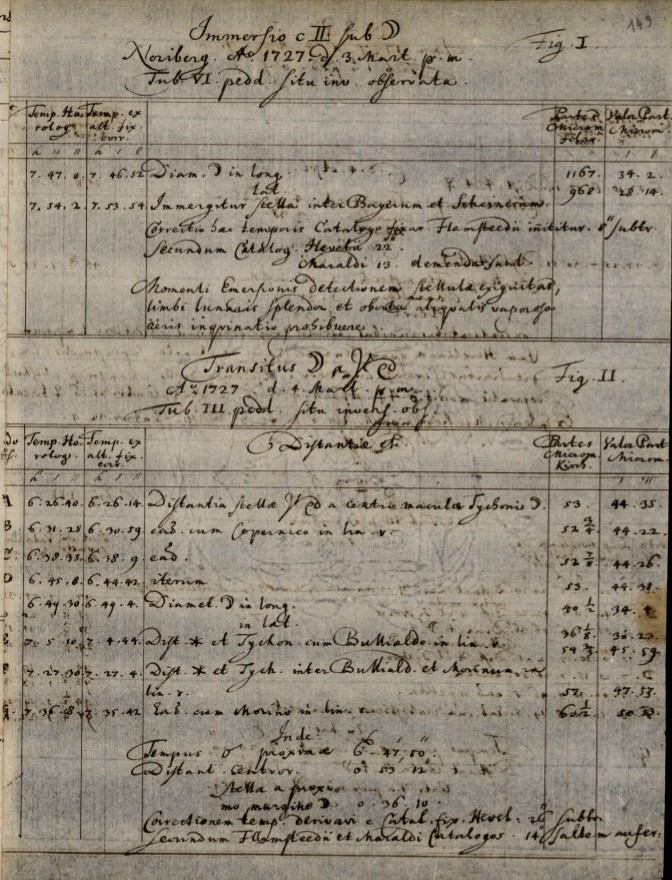 149
Immersio c ♊ sub ☽
Noriberg. Aō 1727 d. 3 Mart. p. m.
Fig. I.
Tub. VI pedd. situ inv. observata.
Temp. Ho- Temp. ex Partes Valor Part.
rolog. alt. fix. Microm. Microm.
corr.
7. 47. 0. 7. 46. 52 Diam. ☽ in long. 1167. 34. 2.
lat. 968. 28. 14.
7. 54. 2. 7. 53. 54 Immergitur stella inter Bayerum et Scheinerum.
Correctio hæc temporis Catalogo Flamsteedii innititur. 8" subtr.
Secundum Catalog. Hevelii 22".
Maraldi 13. demenda sunt.
Momenti Emersionis detectionem stellulæ exiguitas,
limbi lunaris splendor et aliqualis vaporoso
aëris inquinatio prohibuere.
Transitus ☽ a
Aō 1727 d. 4. Mart. p. m.
Fig. II
Tub. III. pedd. situ invers. obs.
Temp. Ho- Temp. ex Distantiæ Partes Valor Part.
rolog. alt. fix. Microm. Microm.
corr. Kirch.
6. 26. 40. 6. 26. 14. Distantia stellæ a centro maculæ Tychonis ☽. 53. 44. 35.
6. 31. 25 6. 30. 59 ead. cum Copernico in lin. r. 52 3/4 44. 22.
6. 38. 35 6. 38. 9 ead. 52 7/8 44. 26.
6. 45. 8. 6. 44. 42 iterum 53. 44. 35.
6. 49. 30 6. 49. 4. Diamet. ☽ in long. 40 1/2 34. 4.
in lat. 36 1/8
7. 5. 10 7. 4. 44. Dist. * et Tychon. cum Bullialdo in lin. r. 45. 59
7. 27. 30 7. 27. 4. Dist. * et Tych. inter Bulliald. et Morinum in
lin. r. 57. 47. 57.
7. 36. 8 7. 35. 42 Ead. cum Morino in lin. r. 60 1/2
Inde
Tempus ☌ proximæ 6h. 47' 50"
Distant. centror. 0. 53. 12"
Stella a proxi-
mo margine ☽ 0. 36. 10.
Correctionem temp. derivavi e Catal. fix. Hevel. 26" subtr.
Secundum Flamsteedii et Maraldi Catalogos. 14" saltem aufer.